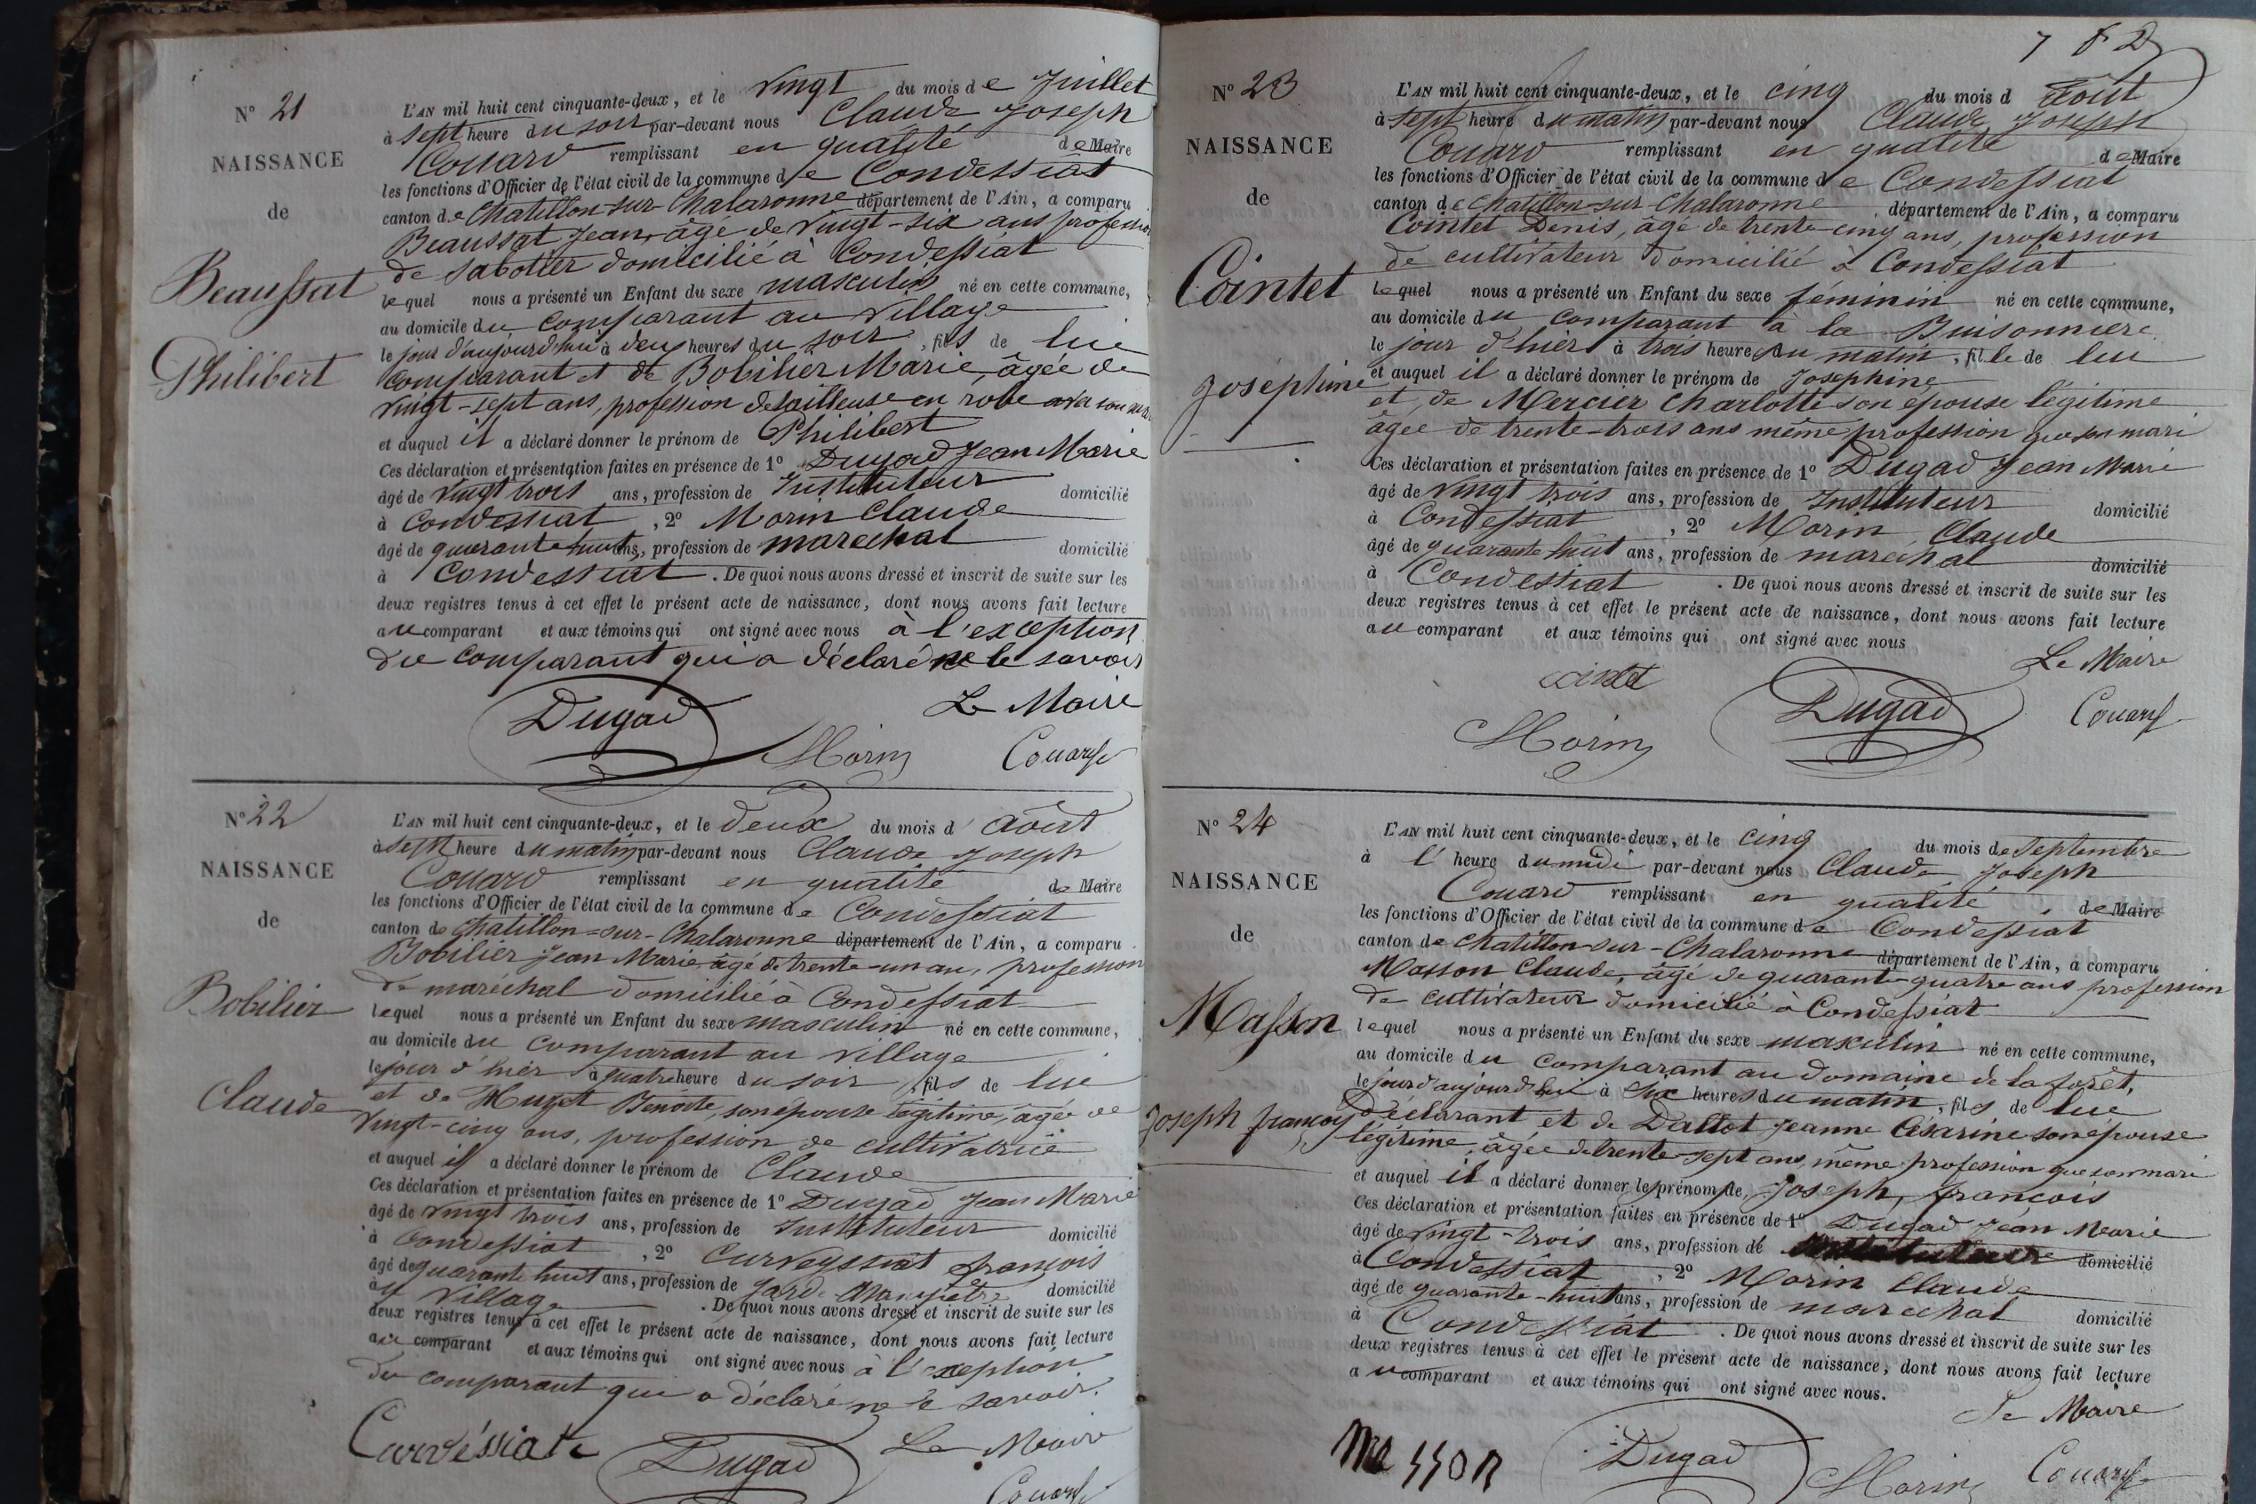 N° 21
NAISSANCE
de
Beaussat
Philibert
L'AN mil huit cent cinquante-deux, et le vingt du mois de Juillet
à sept heure du soir par-devant nous Claude Joseph
Couard remplissant en qualité de Maire
les fonctions d'Officier de l'état civil de la commune de Condessiat
canton de Chatillon-sur-Chalaronne département de l'Ain, a comparu
Beaussat Jean, âgé de vingt-six ans profession
de sabotier domicilié à Condessiat
lequel nous a présenté un Enfant du sexe masculin né en cette commune,
au domicile du comparant au village
le jour d'aujourd'hui à deux heures du soir, fils de lui
comparant et de Bobilier Marie, âgée de
vingt-sept ans, profession de tailleuse en robe
et auquel il a déclaré donner le prénom de Philibert
Ces déclaration et présentation faites en présence de 1° Dugad Jean Marie
âgé de vingt trois ans, profession de Instituteur domicilié
à Condessiat, 2° Morin Claude
âgé de quarante huit ans, profession de marechal domicilié
à Condessiat. De quoi nous avons dressé et inscrit de suite sur les
deux registres tenus à cet effet le présent acte de naissance, dont nous avons fait lecture
au comparant et aux témoins qui ont signé avec nous à l'exception
du comparant qui a déclaré ne le savoir
Le Maire
Dugad Morin Couard
N° 22
NAISSANCE
de
Bobilier
Claude
L'AN mil huit cent cinquante-deux, et le deux du mois d'Août
à sept heure du matin par-devant nous Claude Joseph
Couard remplissant en qualité de Maire
les fonctions d'Officier de l'état civil de la commune de Condessiat
canton de Chatillon-sur-Chalaronne département de l'Ain, a comparu
Bobilier Jean Marie âgé de trente-un an, profession
de maréchal domicilié à Condessiat
lequel nous a présenté un Enfant du sexe masculin né en cette commune,
au domicile du comparant au village
le jour d'hier à quatre heure du soir, fils de lui
et de Huget Benoite, son épouse légitime, âgée de
vingt-cinq ans, profession de cultivatrice
et auquel il a déclaré donner le prénom de Claude
Ces déclaration et présentation faites en présence de 1° Dugad Jean Marie
âgé de vingt trois ans, profession de Instituteur domicilié
à Condessiat, 2° Curveyssiat françois
âgé de quarante huit ans, profession de garde champêtre domicilié
au village. De quoi nous avons dressé et inscrit de suite sur les
deux registres tenus à cet effet le présent acte de naissance, dont nous avons fait lecture
au comparant et aux témoins qui ont signé avec nous à l'exception
du comparant qui a déclaré ne le savoir.
Curvéssiat Dugad Le Maire
Couard
N° 23
NAISSANCE
de
Cointet
Joséphine
L'AN mil huit cent cinquante-deux, et le cinq du mois d'Août
à sept heure du matin par-devant nous Claude Joseph
Couard remplissant en qualité de Maire
les fonctions d'Officier de l'état civil de la commune de Condessiat
canton de Chatillon-sur-Chalaronne, département de l'Ain, a comparu
Cointet Denis, âgé de trente-cinq ans, profession
de cultivateur domicilié à Condessiat
lequel nous a présenté un Enfant du sexe féminin né en cette commune,
au domicile du comparant à la Buisonniere
le jour d'hier à trois heure du matin, fille de lui
et auquel il a déclaré donner le prénom de Joséphine
et de Mercier Charlotte son épouse légitime
âgée de trente-trois ans même profession que son mari
Ces déclaration et présentation faites en présence de 1° Dugad Jean Marie
âgé de vingt trois ans, profession de Instituteur domicilié
à Condessiat, 2° Morin Claude
âgé de quarante huit ans, profession de maréchal domicilié
à Condessiat. De quoi nous avons dressé et inscrit de suite sur les
deux registres tenus à cet effet le présent acte de naissance, dont nous avons fait lecture
au comparant et aux témoins qui ont signé avec nous
Le Maire
Cointet
Morin Dugad Couard
N° 24
NAISSANCE
de
Masson
Joseph françois
L'AN mil huit cent cinquante-deux, et le cinq du mois de Septembre
à l'heure du midi par-devant nous Claude Joseph
Couard remplissant en qualité de Maire
les fonctions d'Officier de l'état civil de la commune de Condessiat
canton de Chatillon-sur-Chalaronne département de l'Ain, a comparu
Masson Claude, âgé de quarante-quatre ans profession
de cultivateur domicilié à Condessiat
lequel nous a présenté un Enfant du sexe masculin né en cette commune,
au domicile du comparant au domaine de la forêt,
le jour d'aujourd'hui à six heures du matin, fils de lui
Déclarant et de Dattot Jeanne Césarine son épouse
légitime, âgée de trente-sept ans, même profession que son mari
et auquel il a déclaré donner le prénom de Joseph, françois
Ces déclaration et présentation faites en présence de 1° Dugad Jean Marie
âgé de vingt-trois ans, profession de Instituteur domicilié
à Condessiat, 2° Morin Claude
âgé de quarante-huit ans, profession de marechal domicilié
à Condessiat. De quoi nous avons dressé et inscrit de suite sur les
deux registres tenus à cet effet le présent acte de naissance, dont nous avons fait lecture
au comparant et aux témoins qui ont signé avec nous.
Le Maire
Masson Dugad Morin Couard